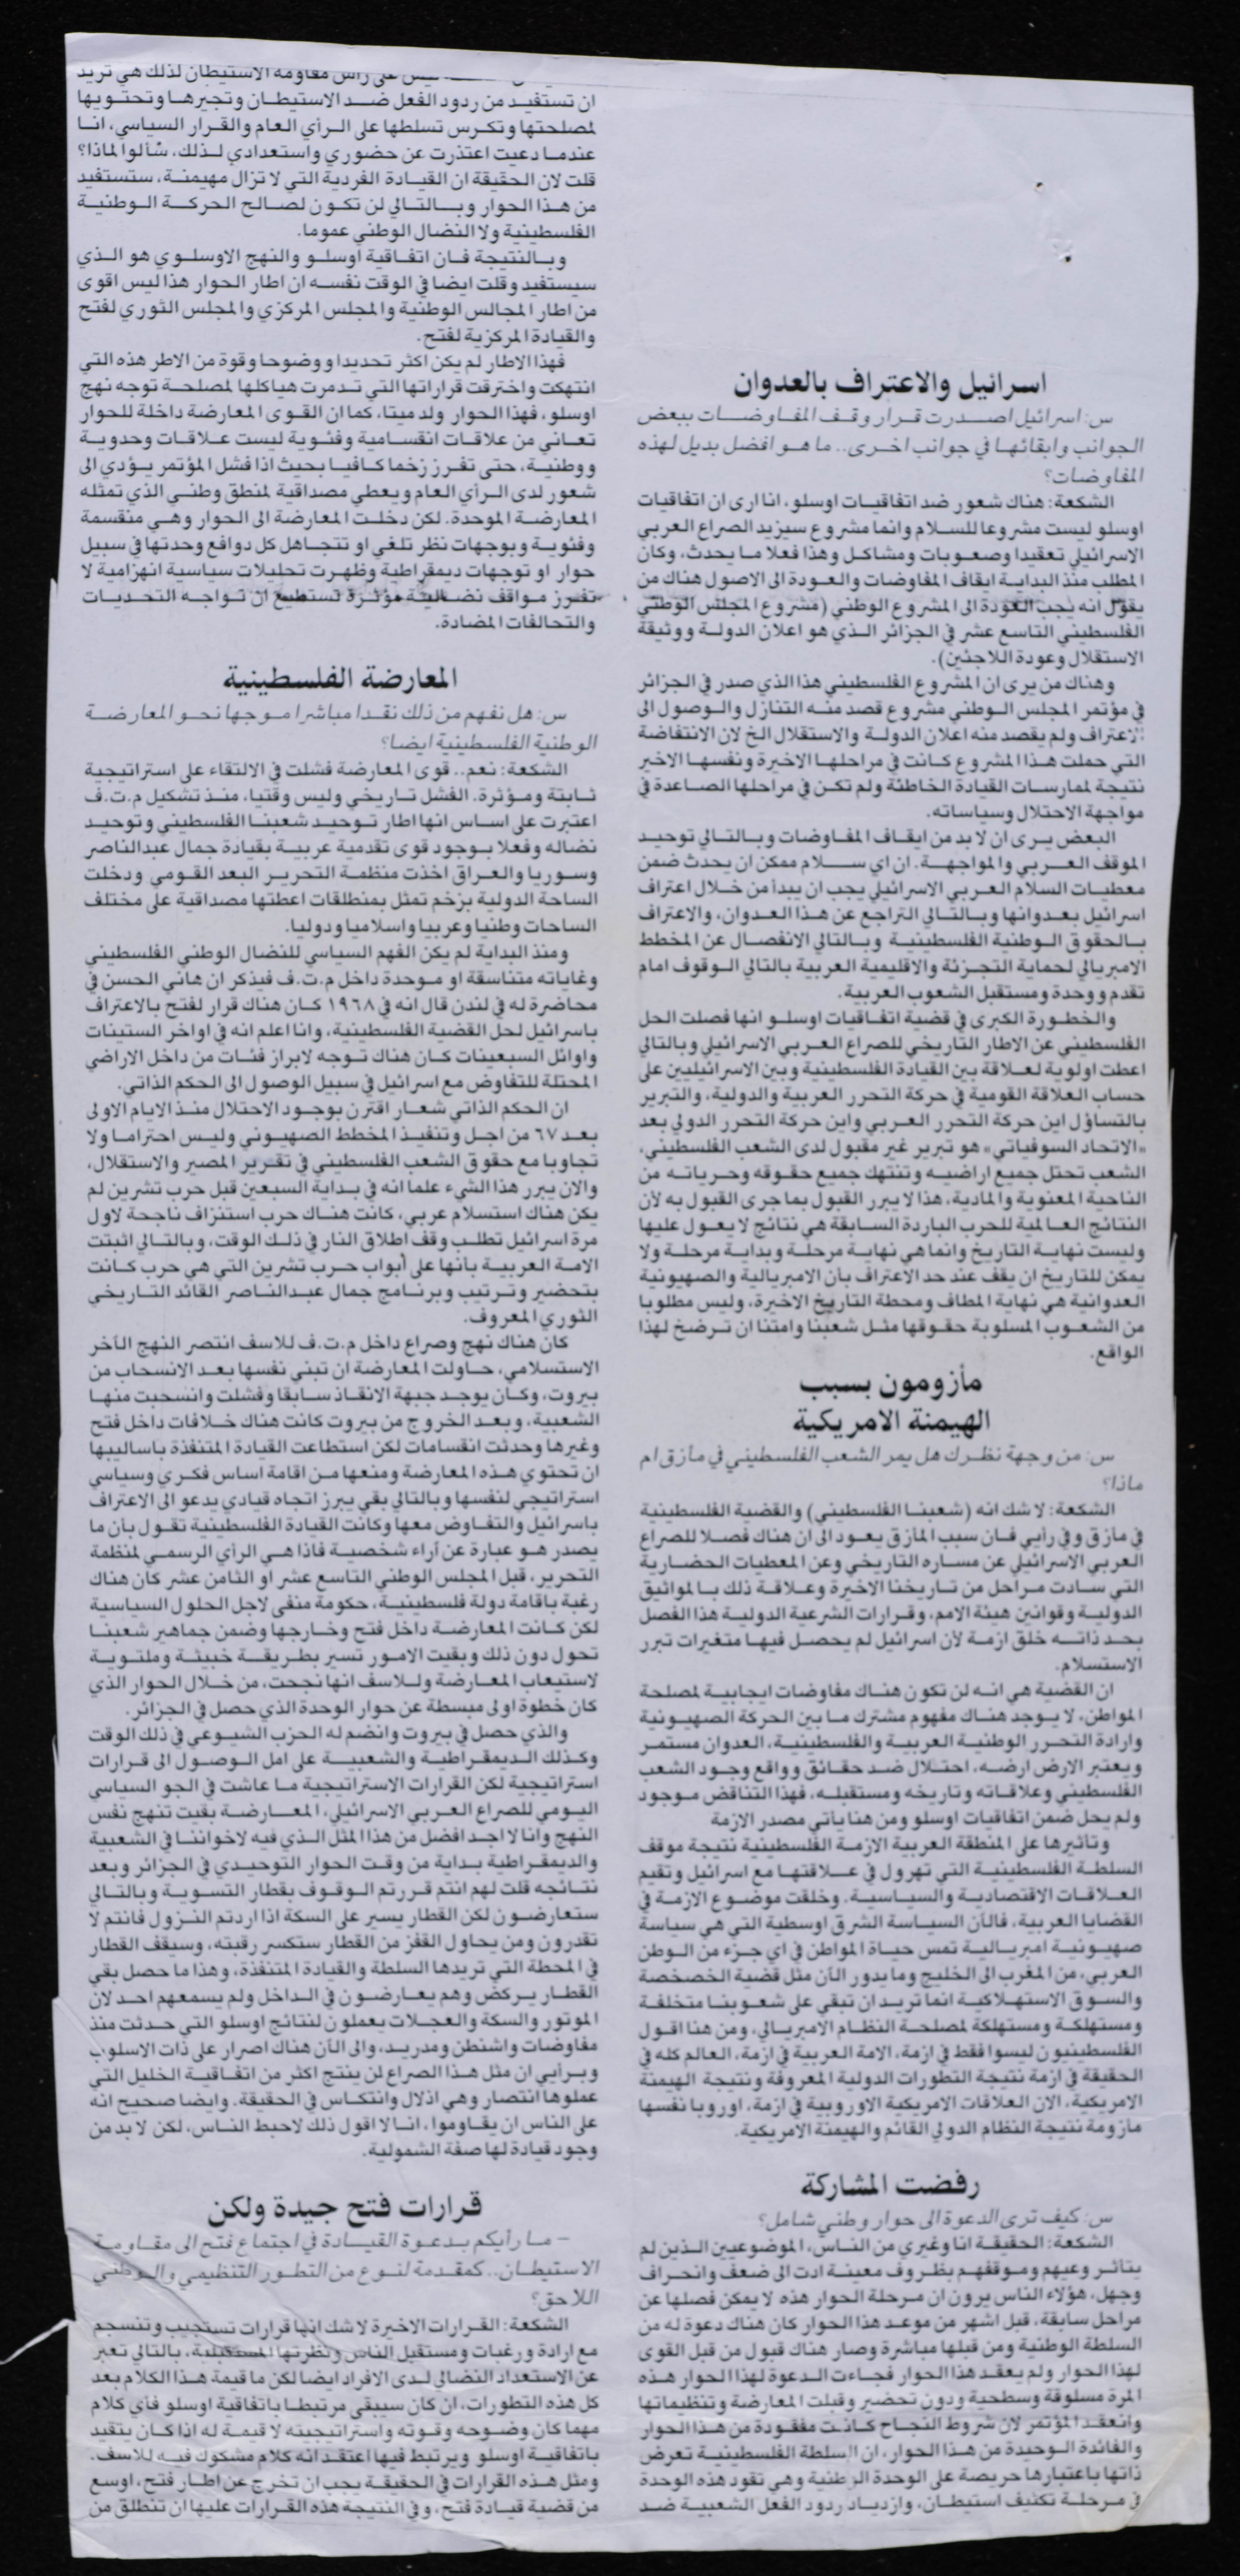 اسرائيل والاعتراف بالعدوان
س: اسرائيل اصدرت قرار وقف المفاوضات ببعض
الجوانب وابقائها في جوانب اخرى.. ما هو افضل بديل لهذه
المفاوضات؟
الشكعة: هناك شعور ضد اتفاقيات اوسلو، انا ارى ان اتفاقيات
اوسلو ليست مشروعا للسلام وانما مشروع سيزيد الصراع العربي
الاسرائيلي تعقيدا وصعوبات ومشاكل وهذا فعلا ما يحدث، وكان
المطلب منذ البداية ايقاف المفاوضات والعودة الى الاصول هناك من
يقول انه يجب العودة الى المشروع الوطني (مشروع المجلس الوطني
الفلسطيني التاسع عشر في الجزائر الذي هو اعلان الدولة ووثيقة
الاستقلال وعودة اللاجئين).
وهناك من يرى ان المشروع الفلسطيني هذا الذي صدر في الجزائر
في مؤتمر المجلس الوطني مشروع قصد منه التنازل والوصول الى
الاعتراف ولم يقصد منه اعلان الدولة والاستقلال الخ لان الانتفاضة
التي حملت هذا المشروع كانت في مراحلها الاخيرة ونفسها الاخير
نتيجة لممارسات القيادة الخاطئة ولم تكن في مراحلها الصاعدة في
مواجهة الاحتلال وسياساته.
البعض يرى ان لا بد من ايقاف المفاوضات وبالتالي توحيد
الموقف العربي والمواجهة. ان اي سلام ممكن ان يحدث ضمن
معطيات السلام العربي الاسرائيلي يجب ان يبدأ من خلال اعتراف
اسرائيل بعدوانها وبالتالي التراجع عن هذا العدوان، والاعتراف
بالحقوق الوطنية الفلسطينية وبالتالي الانفصال عن المخطط
الامبريالي لحماية التجزئة والاقليمية العربية بالتالي الوقوف امام
تقدم ووحدة ومستقبل الشعوب العربية.
والخطورة الكبرى في قضية اتفاقيات اوسلو انها فصلت الحل
الفلسطيني عن الاطار التاريخي للصراع العربي الاسرائيلي وبالتالي
اعطت اولوية لعلاقة بين القيادة الفلسطينية وبين الاسرائيليين على
حساب العلاقة القومية في حركة التحرر العربية والدولية، والتبرير
بالتساؤل اين حركة التحرر العربي واين حركة التحرر الدولي بعد
«الاتحاد السوفياتي» هو تبرير غير مقبول لدى الشعب الفلسطيني،
الشعب تحتل جميع اراضيه وتنتهك جميع حقوقه وحرياته من
الناحية المعنوية والمادية، هذا لا يبرر القبول بما جرى القبول به لأن
النتائج العالمية للحرب الباردة السابقة هي نتائج لا يعول عليها
وليست نهاية التاريخ وانما هي نهاية مرحلة وبداية مرحلة ولا
يمكن للتاريخ ان يقف عند حد الاعتراف بأن الامبريالية والصهيونية
العدوانية هي نهاية المطاف ومحطة التاريخ الاخيرة، وليس مطلوبا
من الشعوب المسلوبة حقوقها مثل شعبنا وامتنا ان ترضخ لهذا
الواقع.
مأزومون بسبب
الهيمنة الامريكية
س: من وجهة نظرك هل يمر الشعب الفلسطيني في مأزق ام
ماذا؟
الشكعة: لا شك انه (شعبنا الفلسطيني) والقضية الفلسطينية
في مأزق وفي رأيي فان سبب المأزق يعود الى ان هناك فصلا للصراع
العربي الاسرائيلي عن مساره التاريخي وعن المعطيات الحضارية
التي سادت مراحل من تاريخنا الاخيرة وعلاقة ذلك بالمواثيق
الدولية وقوانين هيئة الامم، وقرارات الشرعية الدولية هذا الفصل
بحد ذاته خلق ازمة لأن اسرائيل لم يحصل فيها متغيرات تبرر
الاستسلام.
ان القضية هي انه لن تكون هناك مفاوضات ايجابية لمصلحة
المواطن، لا يوجد هناك مفهوم مشترك ما بين الحركة الصهيونية
وارادة التحرر الوطنية العربية والفلسطينية، العدوان مستمر
ويعتبر الارض ارضه، احتلال ضد حقائق وواقع وجود الشعب
الفلسطيني وعلاقاته وتاريخه ومستقبله، فهذا التناقض موجود
ولم يحل ضمن اتفاقيات اوسلو ومن هنا يأتي مصدر الازمة
وتأثيرها على المنطقة العربية الازمة الفلسطينية نتيجة موقف
السلطة الفلسطينية التي تهرول في علاقتها مع اسرائيل وتقيم
العلاقات الاقتصادية والسياسية. وخلقت موضوع الازمة في
القضايا العربية، فالآن السياسة الشرق اوسطية التي هي سياسة
صهيونية امبريالية تمس حياة المواطن في اي جزء من الوطن
العربي، من المغرب الى الخليج وما يدور الآن مثل قضية الخصخصة
والسوق الاستهلاكية انما تريد ان تبقي على شعوبنا متخلفة
ومستهلكة ومستهلكة لمصلحة النظام الامبريالي، ومن هنا اقول
الفلسطينيون ليسوا فقط في ازمة، الامة العربية في ازمة، العالم كله في
الحقيقة في ازمة نتيجة التطورات الدولية المعروفة ونتيجة الهيمنة
الامريكية، الان العلاقات الامريكية الاوروبية في ازمة، اوروبا نفسها
مأزومة نتيجة النظام الدولي القائم والهيمنة الامريكية.
رفضت المشاركة
س: كيف ترى الدعوة الى حوار وطني شامل؟
الشكعة: الحقيقة انا وغيري من الناس، الموضوعيين الذين لم
يتأثر وعيهم وموقفهم بظروف معينة ادت الى ضعف وانحراف
وجهل، هؤلاء الناس يرون ان مرحلة الحوار هذه لا يمكن فصلها عن
مراحل سابقة، قبل اشهر من موعد هذا الحوار كان هناك دعوة له من
السلطة الوطنية ومن قبلها مباشرة وصار هناك قبول من قبل القوى
لهذا الحوار ولم يعقد هذا الحوار فجاءت الدعوة لهذا الحوار هذه
المرة مسلوقة وسطحية ودون تحضير وقبلت المعارضة وتنظيماتها
وانعقد المؤتمر لان شروط النجاح كانت مفقودة من هذا الحوار
والفائدة الوحيدة من هذا الحوار، ان السلطة الفلسطينية تعرض
ذاتها باعتبارها حريصة على الوحدة الوطنية وهي تقود هذه الوحدة
في مرحلة تكثيف استيطان، وازدياد ردود الفعل الشعبية ضد
ليس على رأس مقاومة الاستيطان لذلك هي تريد
ان تستفيد من ردود الفعل ضد الاستيطان وتجيرها وتحتويها
لمصلحتها وتكرس تسلطها على الرأي العام والقرار السياسي، انا
عندما دعيت اعتذرت عن حضوري واستعدادي لذلك، سألوا لماذا؟
قلت لان الحقيقة ان القيادة الفردية التي لا تزال مهيمنة، ستستفيد
من هذا الحوار وبالتالي لن تكون لصالح الحركة الوطنية
الفلسطينية ولا النضال الوطني عموما.
وبالنتيجة فان اتفاقية اوسلو والنهج الاوسلوي هو الذي
سيستفيد وقلت ايضا في الوقت نفسه ان اطار الحوار هذا ليس اقوى
من اطار المجالس الوطنية والمجلس المركزي والمجلس الثوري لفتح
والقيادة المركزية لفتح.
فهذا الاطار لم يكن اكثر تحديدا ووضوحا وقوة من الاطر هذه التي
انتهكت واخترقت قراراتها التي تدمرت هياكلها لمصلحة توجه نهج
اوسلو، فهذا الحوار ولد ميتا، كما ان القوى المعارضة داخلة للحوار
تعاني من علاقات انقسامية وفئوية ليست علاقات وحدوية
ووطنية، حتى تفرز زخما كافيا بحيث اذا فشل المؤتمر يؤدي الى
شعور لدى الرأي العام ويعطي مصداقية لمنطق وطني الذي تمثله
المعارضة الموحدة. لكن دخلت المعارضة الى الحوار وهي منقسمة
وفئوية وبوجهات نظر تلغي او تتجاهل كل دوافع وحدتها في سبيل
حوار او توجهات ديمقراطية وظهرت تحليلات سياسية انهزامية لا
تفرز مواقف نضالية مؤثرة تستطيع ان تواجه التحديات
والتحالفات المضادة.
المعارضة الفلسطينية
س: هل نفهم من ذلك نقدا مباشرا موجها نحو المعارضة
الوطنية الفلسطينية ايضا؟
الشكعة: نعم.. قوى المعارضة فشلت في الالتقاء على استراتيجية
ثابتة ومؤثرة. الفشل تاريخي وليس وقتيا، منذ تشكيل م.ت.ف
اعتبرت على اساس انها اطار توحيد شعبنا الفلسطيني وتوحيد
نضاله وفعلا بوجود قوى تقدمية عربية بقيادة جمال عبدالناصر
وسوريا والعراق اخذت منظمة التحرير البعد القومي ودخلت
الساحة الدولية بزخم تمثل بمنطلقات اعطتها مصداقية على مختلف
الساحات وطنيا وعربيا واسلاميا ودوليا.
ومنذ البداية لم يكن الفهم السياسي للنضال الوطني الفلسطيني
وغاياته متناسقة او موحدة داخل م.ت.ف فيذكر ان هاني الحسن في
محاضرة له في لندن قال انه في ١٩٦٨ كان هناك قرار لفتح بالاعتراف
باسرائيل لحل القضية الفلسطينية، وانا اعلم انه في اواخر الستينات
واوائل السبعينات كان هناك توجه لابراز فئات من داخل الاراضي
المحتلة للتفاوض مع اسرائيل في سبيل الوصول الى الحكم الذاتي.
ان الحكم الذاتي شعار اقترن بوجود الاحتلال منذ الايام الاولى
بعد ٦٧ من اجل وتنفيذ المخطط الصهيوني وليس احتراما ولا
تجاوبا مع حقوق الشعب الفلسطيني في تقرير المصير والاستقلال،
والان يبرر هذا الشيء علما انه في بداية السبعين قبل حرب تشرين لم
يكن هناك استسلام عربي، كانت هناك حرب استنزاف ناجحة لاول
مرة اسرائيل تطلب وقف اطلاق النار في ذلك الوقت، وبالتالي اثبتت
الامة العربية بأنها على أبواب حرب تشرين التي هي حرب كانت
بتحضير وترتيب وبرنامج جمال عبدالناصر القائد التاريخي
الثوري المعروف.
كان هناك نهج وصراع داخل م.ت.ف للاسف انتصر النهج الآخر
الاستسلامي، حاولت المعارضة ان تبني نفسها بعد الانسحاب من
بيروت، وكان يوجد جبهة الانقاذ سابقا وفشلت وانسحبت منها
الشعبية، وبعد الخروج من بيروت كانت هناك خلافات داخل فتح
وغيرها وحدثت انقسامات لكن استطاعت القيادة المتنفذة باساليبها
ان تحتوي هذه المعارضة ومنعها من اقامة اساس فكري وسياسي
استراتيجي لنفسها وبالتالي بقي يبرز اتجاه قيادي يدعو الى الاعتراف
باسرائيل والتفاوض معها وكانت القيادة الفلسطينية تقول بأن ما
يصدر هو عبارة عن آراء شخصية فاذا هي الرأي الرسمي لمنظمة
التحرير، قبل المجلس الوطني التاسع عشر او الثامن عشر كان هناك
رغبة باقامة دولة فلسطينية، حكومة منفى لاجل الحلول السياسية
لكن كانت المعارضة داخل فتح وخارجها وضمن جماهير شعبنا
تحول دون ذلك وبقيت الامور تسير بطريقة خبيثة وملتوية
لاستيعاب المعارضة وللاسف انها نجحت، من خلال الحوار الذي
كان خطوة اولى مبسطة عن حوار الوحدة الذي حصل في الجزائر.
والذي حصل في بيروت وانضم له الحزب الشيوعي في ذلك الوقت
وكذلك الديمقراطية والشعبية على امل الوصول الى قرارات
استراتيجية لكن القرارات الاستراتيجية ما عاشت في الجو السياسي
اليومي للصراع العربي الاسرائيلي، المعارضة بقيت تنهج نفس
النهج وانا لا اجد افضل من هذا المثل الذي فيه لاخواننا في الشعبية
والديمقراطية بداية من وقت الحوار التوحيدي في الجزائر وبعد
نتائجه قلت لهم انتم قررتم الوقوف بقطار التسوية وبالتالي
ستعارضون لكن القطار يسير على السكة اذا اردتم النزول فانتم لا
تقدرون ومن يحاول القفز من القطار ستكسر رقبته، وسيقف القطار
في المحطة التي تريدها السلطة والقيادة المتنفذة، وهذا ما حصل بقي
القطار يركض وهم يعارضون في الداخل ولم يسمعهم احد لان
الموتور والسكة والعجلات يعملون لنتائج اوسلو التي حدثت منذ
مفاوضات واشنطن ومدريد، والى الآن هناك اصرار على ذات الاسلوب
وبرأيي ان مثل هذا الصراع لن ينتج اكثر من اتفاقية الخليل التي
عملوها انتصار وهي اذلال وانتكاس في الحقيقة. وايضا صحيح انه
على الناس ان يقاوموا، انا لا اقول ذلك لاحبط الناس، لكن لا بد من
وجود قيادة لها صفة الشمولية.
قرارات فتح جيدة ولكن
– ما رأيكم بدعوة القيادة في اجتماع فتح الى مقاومة
الاستيطان.. كمقدمة لنوع من التطور التنظيمي والوطني
اللاحق؟
الشكعة: القرارات الاخيرة لا شك انها قرارات تستجيب وتنسجم
مع ارادة ورغبات ومستقبل الناس ونظرتها المستقبلية، بالتالي تعبر
عن الاستعداد النضالي لدى الافراد ايضا لكن ما قيمة هذا الكلام بعد
كل هذه التطورات، ان كان سيبقى مرتبطا باتفاقية اوسلو فأي كلام
مهما كان وضوحه وقوته واستراتيجيته لا قيمة له اذا كان يتقيد
باتفاقية اوسلو ويرتبط فيها اعتقد انه كلام مشكوك فيه للاسف.
ومثل هذه القرارات في الحقيقة يجب ان تخرج عن اطار فتح، اوسع
من قضية قيادة فتح، وفي النتيجة هذه القرارات عليها ان تنطلق من